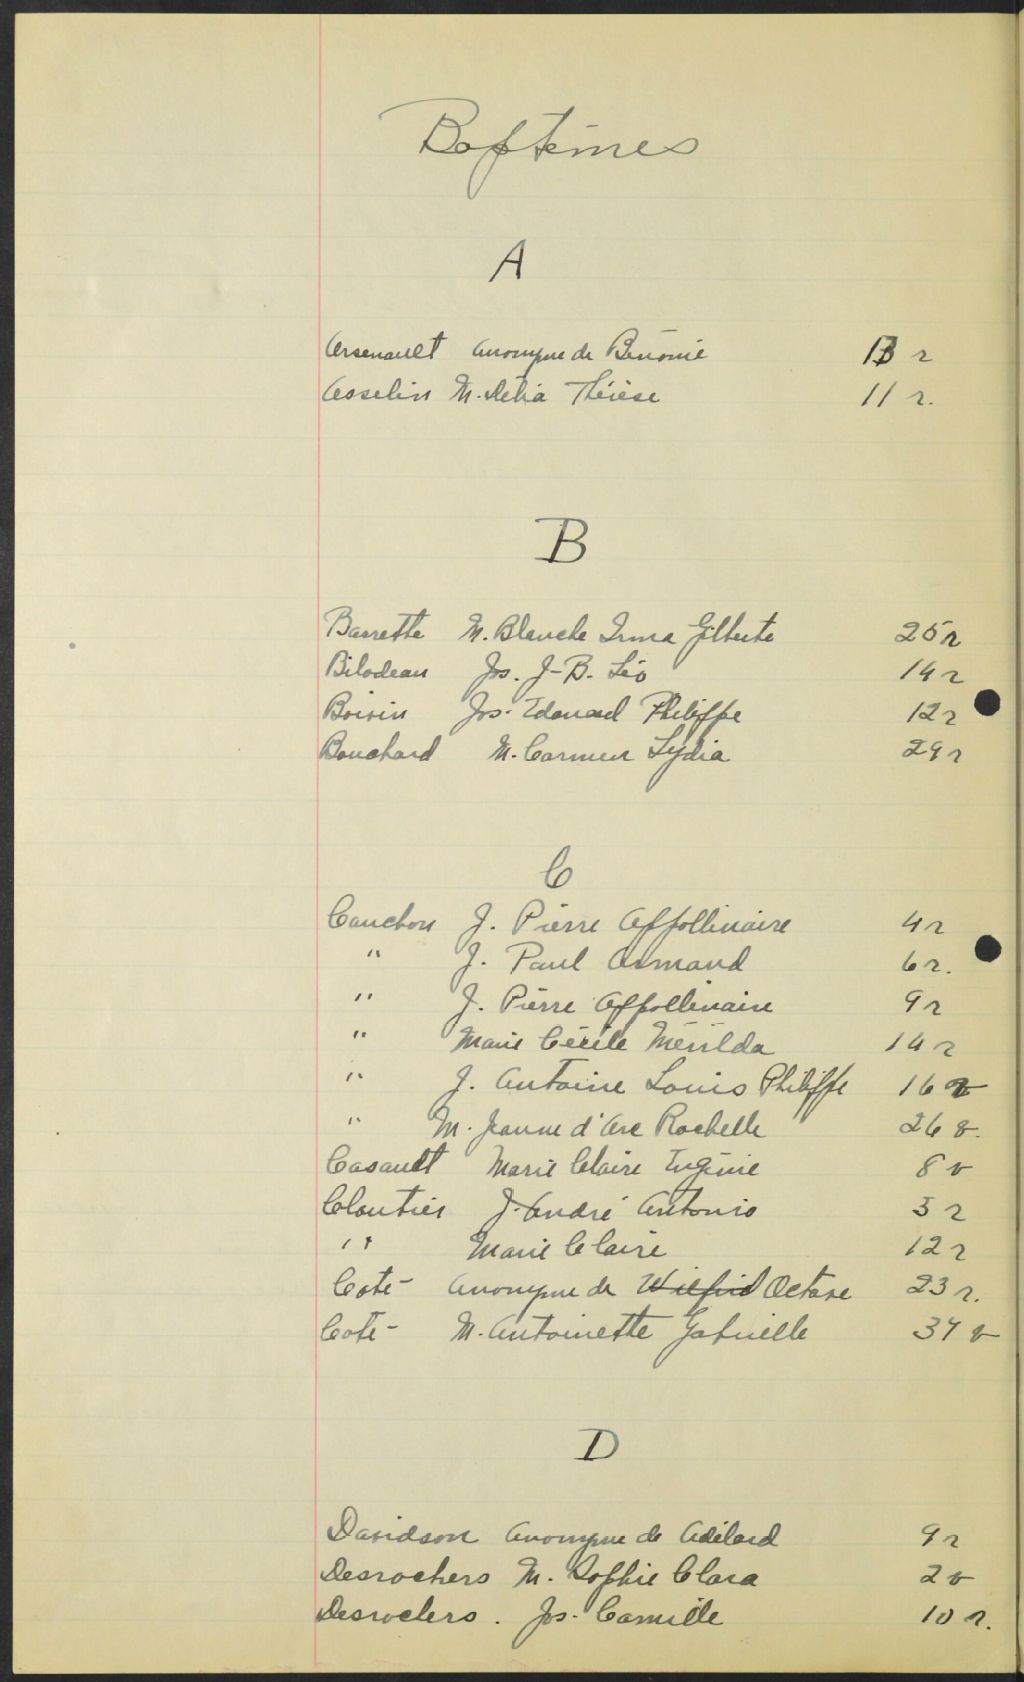 Baptêmes
A
Arsenault anonyme de Bénonie 13 r
Asselin M. Délia Thérèse 11 r.
B
Barrette M. Blanche Irma Gilberte 25 r
Bilodeau Jos. J-B. Léo 14 r
Boivin Jos. Edouard Philippe 12 r
Bouchard M. Carmen Lydia 29 r
C
Cauchon J. Pierre Appollinaire 4 r
" J. Paul Armand 6 r.
" J. Pierre Appollinaire 9 r
" Marie Cécile Mérilda 14 r
" J. Antoine Louis Philippe 16 v
" M. Jeanne d'Arc Rachelle 26 v.
Casault Marie Claire Eugénie 8 v
Cloutier J. André Antonio 5 r
" Marie Claire 12 r
Coté - Anonyme de Wilfrid Octave 23 r.
Coté - M. Antoinette Gabrielle 34 v
D
Davidson Anonyme de Adélard 9 r
Desrochers M. Sophie Clara 2 v
Desrochers. Jos. Camille 10 r.